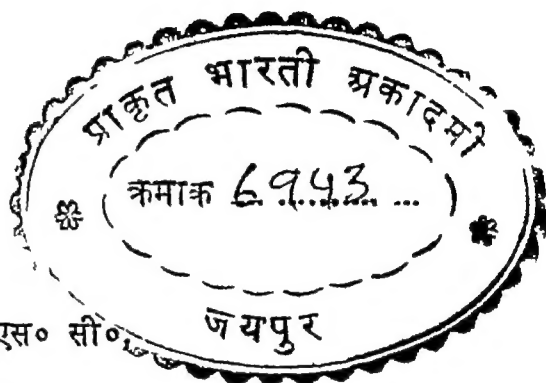 प्राकृत भारती अकादमी
क्रमाक 6943
जयपुर
एस० सी०